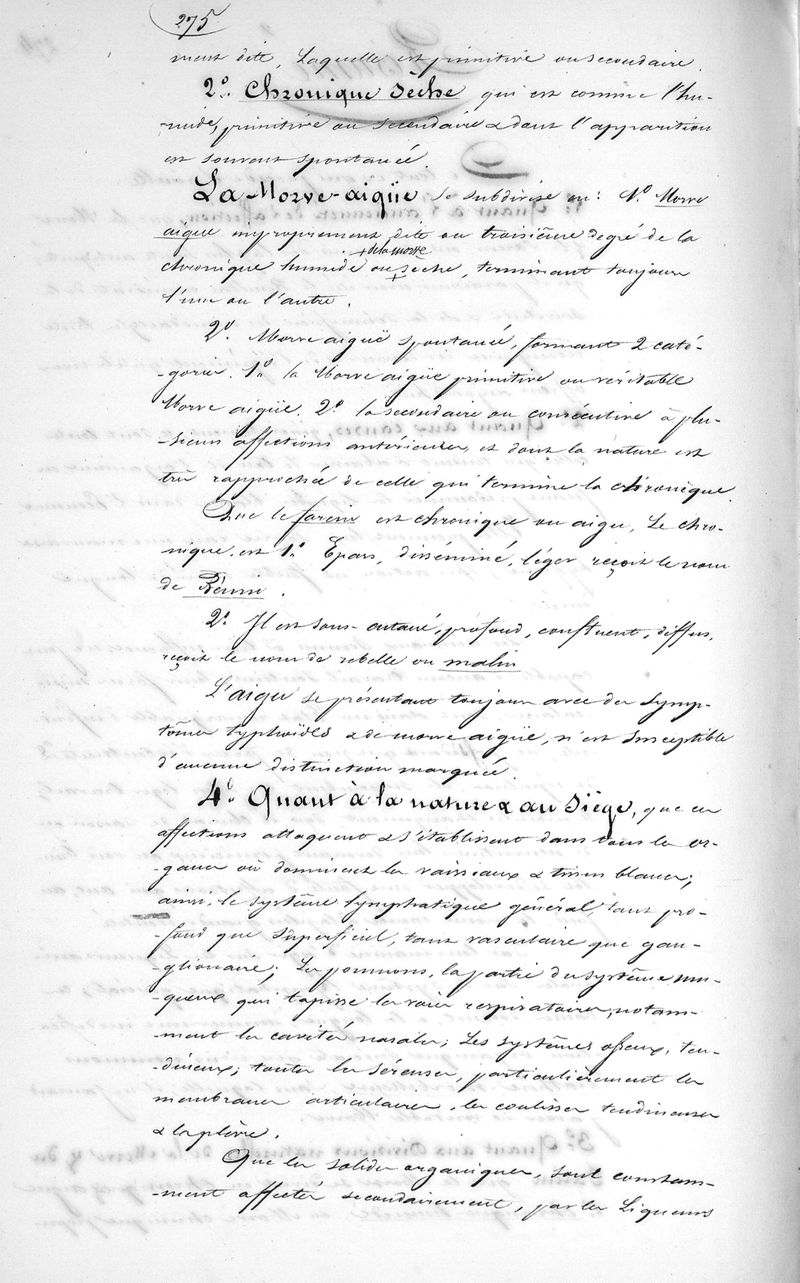 275
ment dite, Laquelle est primitive ou secondaire.
2.° Chronique Sèche qui est comme l'hu-
mide, primitive ou secondaire & dont l'apparition
est souvent spontanée.
La Morve-aigüe se subdivise en : 1.° Morve
aigue improprement dite ou troisième degré de la
+ de la morve
chronique humide ou + sèche, terminant toujours
l'une ou l'autre.
2.° Morve aigüe spontanée, formant 2 caté-
-gories. 1.° la Morve aigüe primitive ou véritable
Morve aigüe. 2.° la secondaire ou consécutive à plu-
-sieurs affections antérieures, et dont la nature est
très rapprochée de celle qui termine la chronique.
Que le farcin est chronique ou aigu, Le chro-
-nique. est 1.° Epars, disséminé, léger reçoit le nom
de Bénin.
2.° Il est sous-cutané, profond, confluent, diffus,
reçoit le nom de rebelle ou malin
L'aigu se présentant toujours avec des symp-
tômes typhoïdes & de morve aigüe, n'est susceptible
d'aucune distinction marquée.
4.° Quant à la nature & au Siège, que ces
affections attaquent & s'établissent dans tous les or-
-ganes où dominent les vaisseaux & tissus blancs;
ainsi, le système lymphatique général, tant pro-
-fond que superficiel, tant vasculaire que gan-
-glionaire; Les poumons, la partie du système mu-
-queux qui tapisse les voies respiratoires, notam-
-ment les cavités nasales; Les systèmes osseux, ten-
-dineux; toutes les séreuses, particulièrement les
membranes articulaires, les coulisses tendineuses
& la plèvre.
Que les solides organiques, sont constam-
-ment affectés secondairement, par les Liqueurs